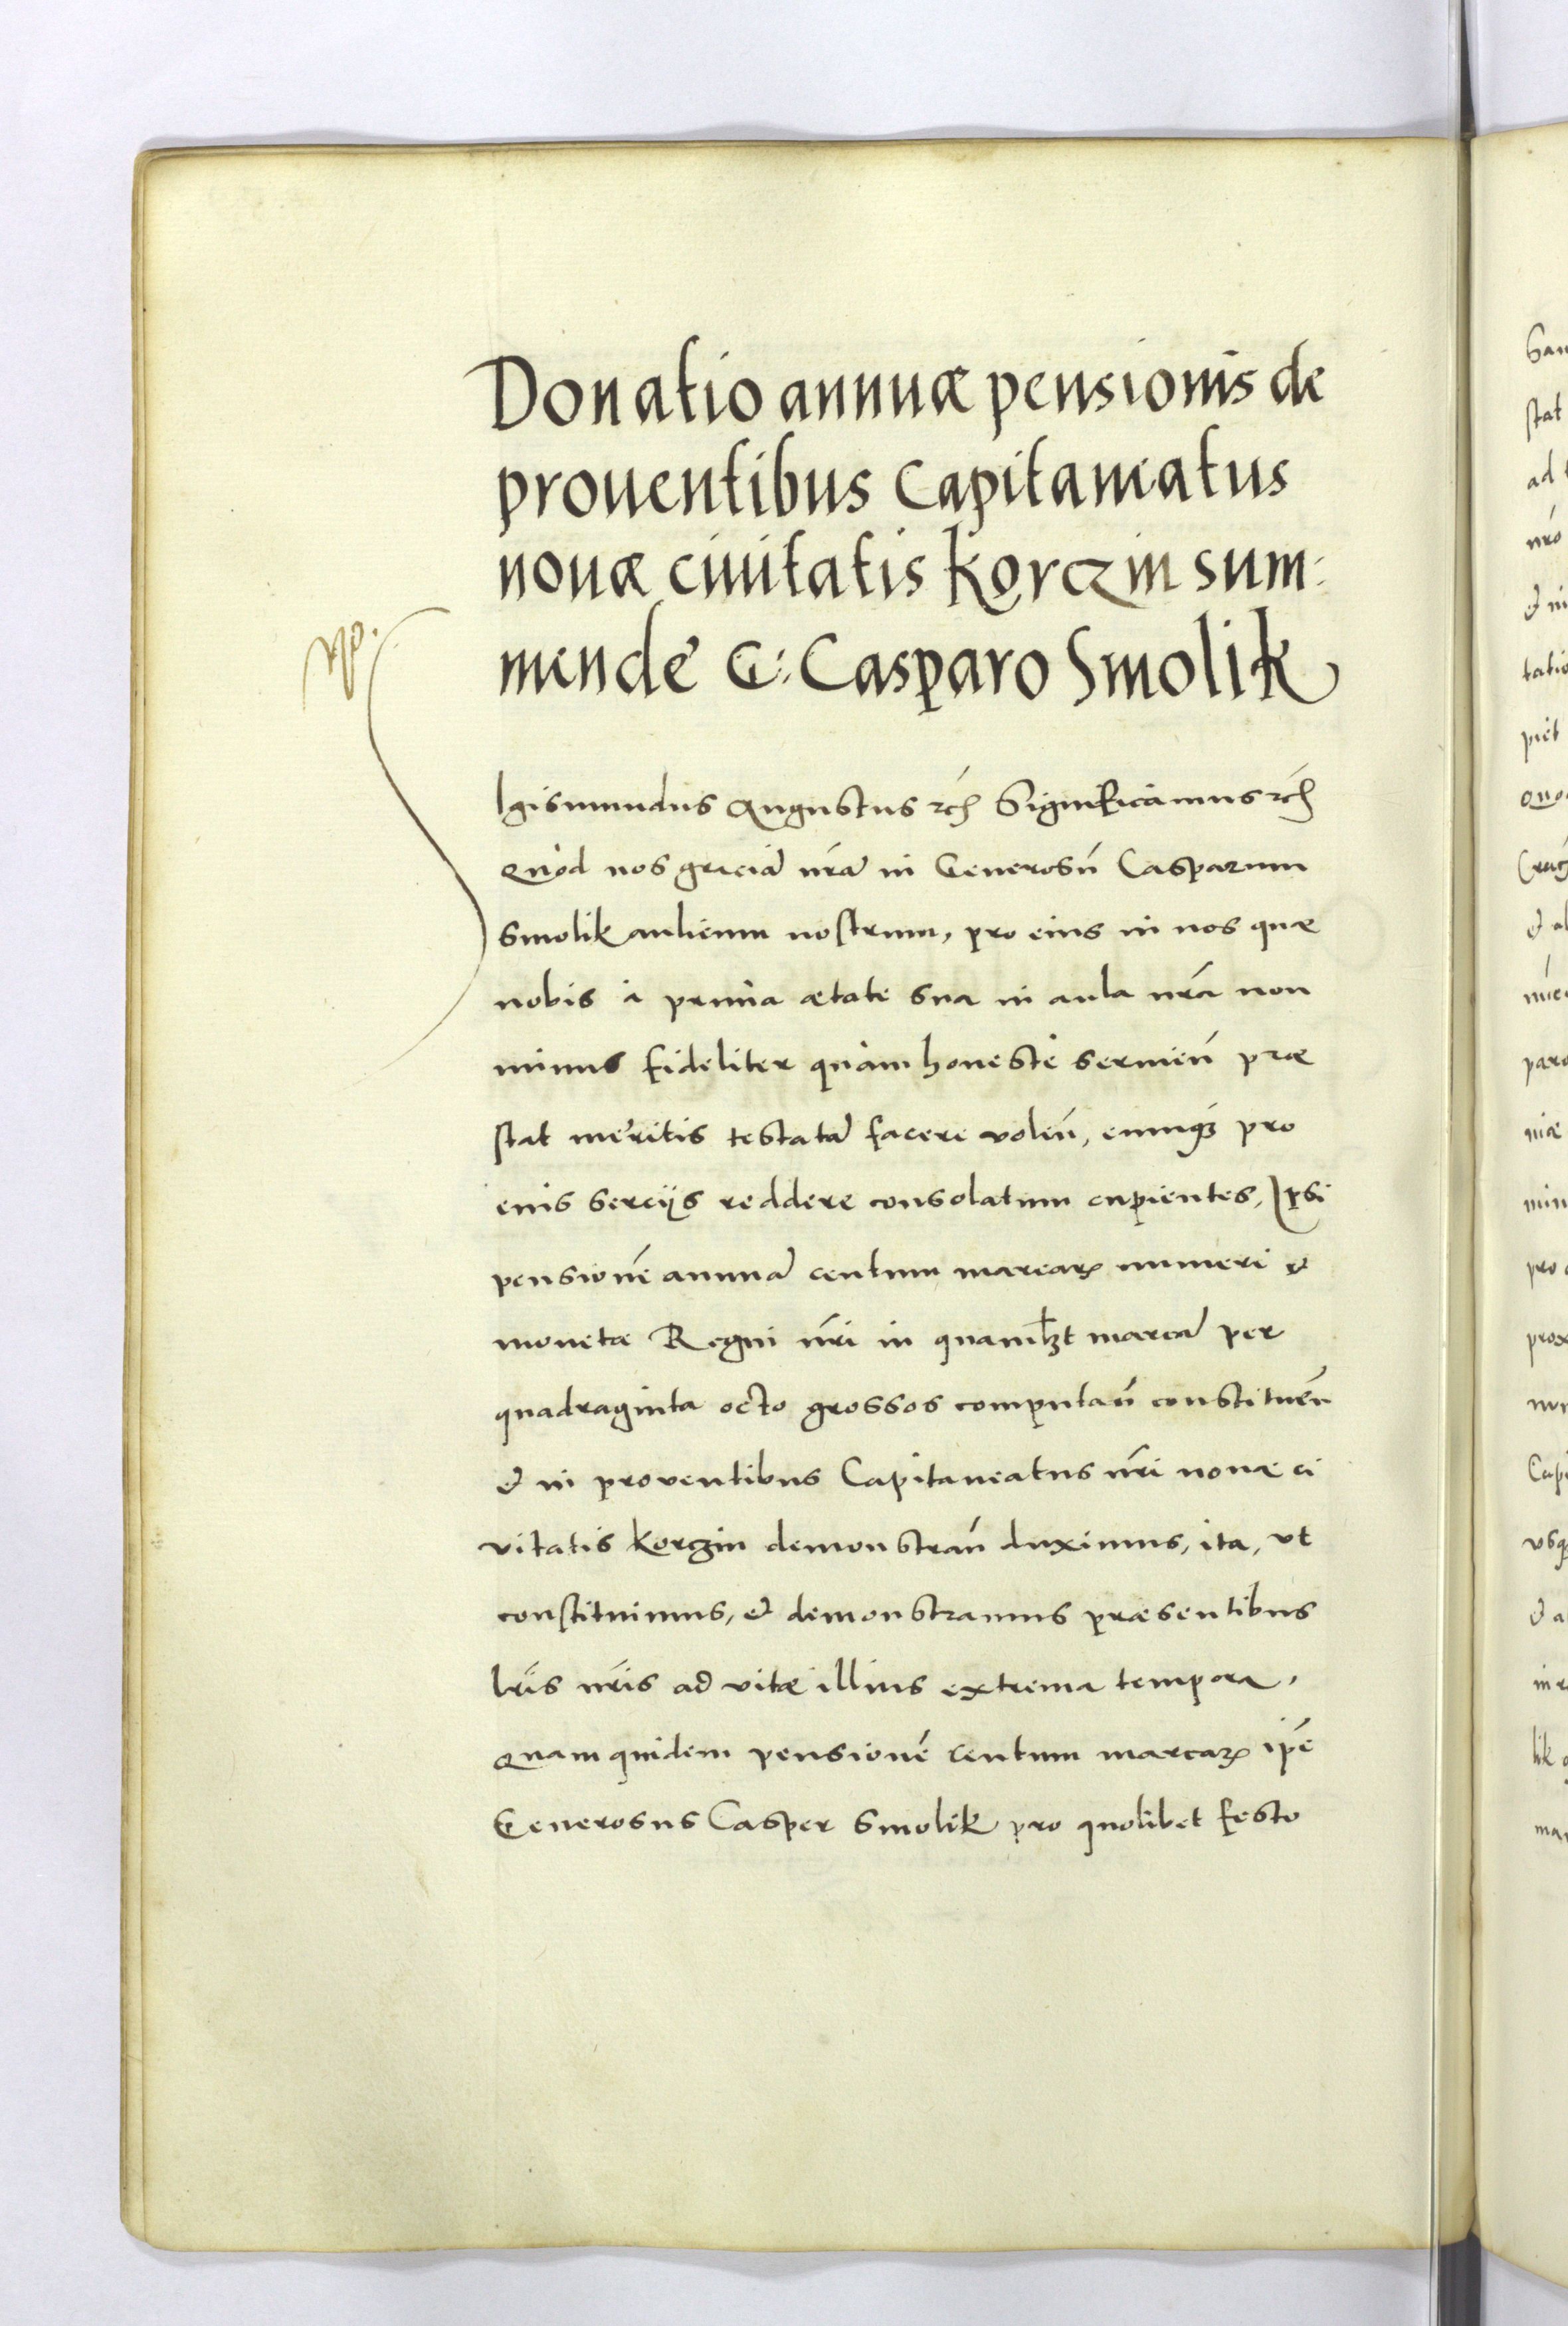 Donatio annuæ pensionis de
prouentibus Capitaneatus
nouæ ciuitatis korczin sum:
mendę G: Casparo Smolik
Igismundus Augustus rc̃ Significamus rc̃
Quòd nos graciã nr̃ã in Generosũ Casparum
Smolik aulicum nostrum, pro eius in nos quæ
nobis à prima ætate sua in aula nr̃a non
minus fideliter quàm honestè seruień præ
stat meritis testatã facere voleń, eumq́ꝫ pro
eius serciĳs reddere consolatum cupientes, Ipsi
pensionẽ annuã centum marcarꝝ numeri et
monetæ Regni nr̃i in quamlꝫt marcã per
quadraginta octo grossos computań constitueń
et in proventibus Capitaneatus nr̃i nouæ ci
vitatis korczin demonstrań duximus, ita, vt
constituimus, et demonstramus præsentibus
lr̃is nr̃is ad vitæ illius extrema tempora.
Quam quidem pensionẽ centum marcarꝝ ip̃e
Generosus Casper Smolik pro quolibet festo